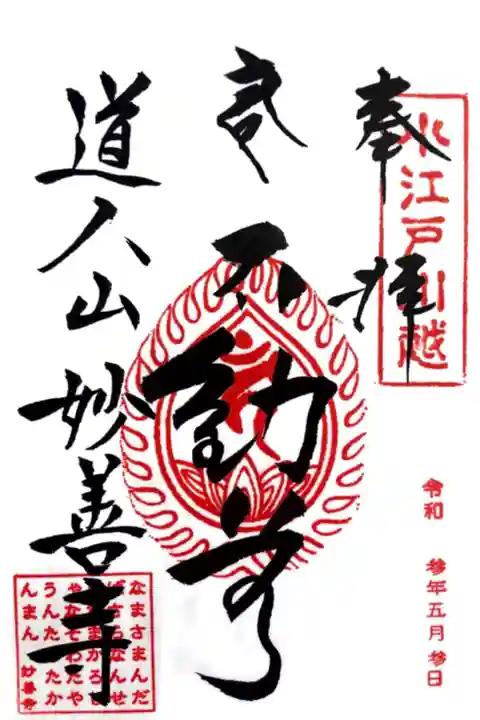 奉拝
小江戸川越
令和 参年五月参日
不動尊
道人山 妙善寺
なまさまんだ
ばさらなんせ
んだまかろし
ゃなそわたや
うんたらたか
んまん
妙善寺